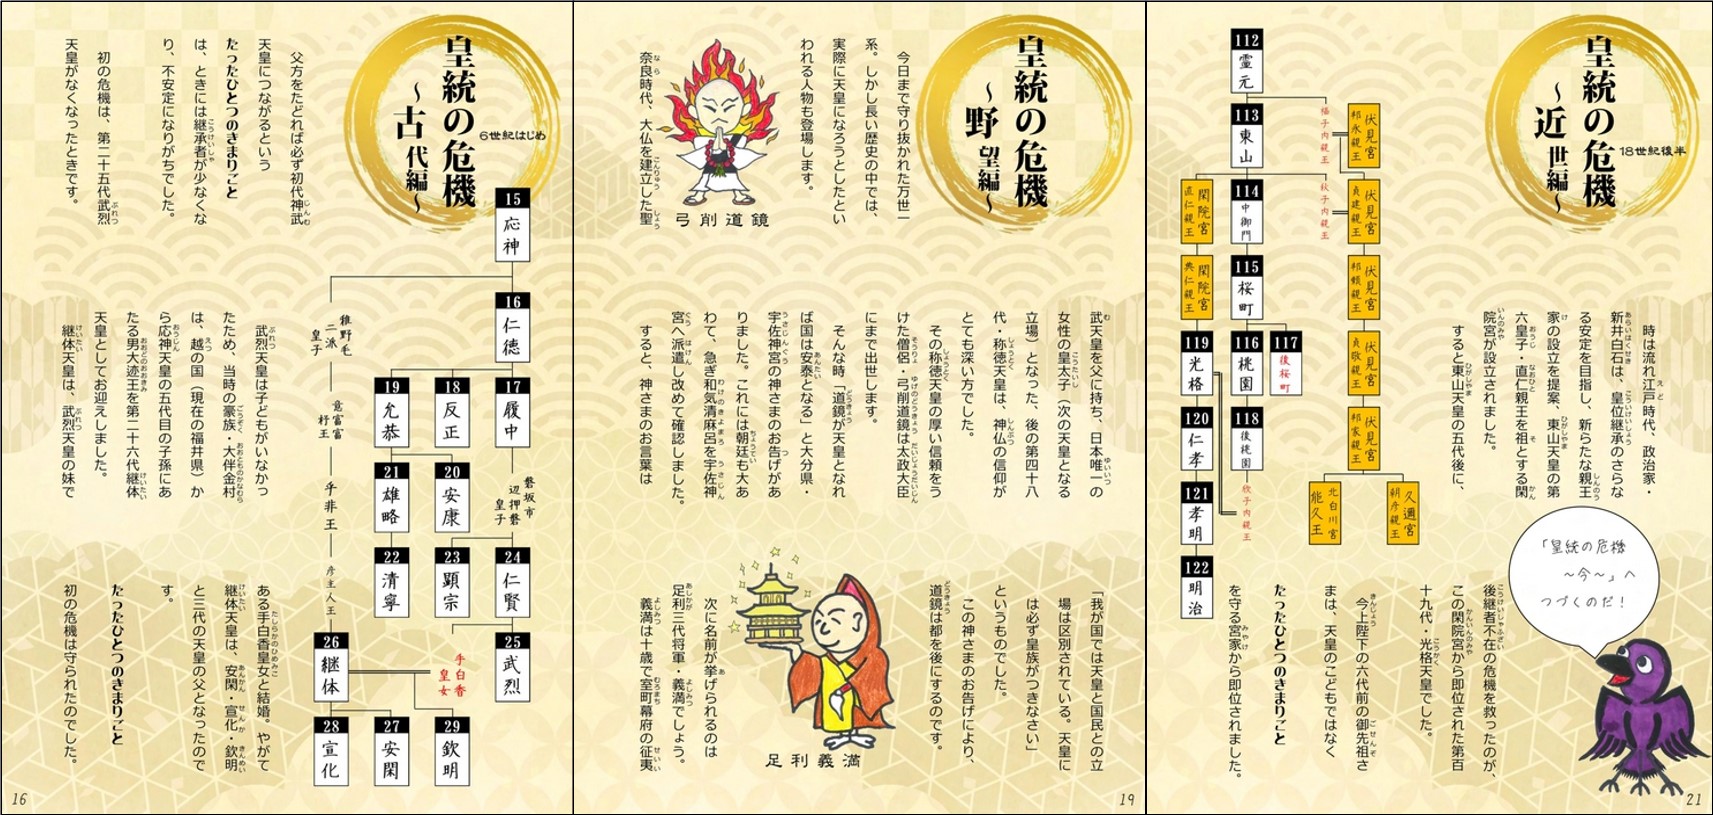 皇統の危機
～古代編～
6世紀はじめ
父方をたどれば必ず初代神武
天皇につながるという
たったひとつのきまりごと
は、ときには継承者が少なくな
り、不安定になりがちでした。
初の危機は、第二十五代武烈
天皇がなくなったときです。
武烈天皇は子どもがいなかっ
たため、当時の豪族・大伴金村
は、越の国（現在の福井県）か
ら応神天皇の五代目の子孫にあ
たる男大迹王を第二十六代継体
天皇としてお迎えしました。
継体天皇は、武烈天皇の妹で
ある手白香皇女と結婚。やがて
継体天皇は、安閑・宣化・欽明
と三代の天皇の父となったので
す。
たったひとつのきまりごと
初の危機は守られたのでした。
15 応神
16 仁徳
稚野毛二派皇子
17 履中
18 反正
19 允恭
意富富杼王
20 安康
21 雄略
磐坂市辺押磐皇子
乎非王
22 清寧
23 顕宗
24 仁賢
彦主人王
25 武烈
手白香皇女
26 継体
27 安閑
28 宣化
29 欽明
16
皇統の危機
～野望編～
今日まで守り抜かれた万世一
系。しかし長い歴史の中では、
実際に天皇になろうとしたとい
われる人物も登場します。
弓削道鏡
奈良時代、大仏を建立した聖
武天皇を父に持ち、日本唯一の
女性の皇太子（次の天皇となる
立場）となった、後の第四十八
代・称徳天皇は、神仏の信仰が
とても深い方でした。
その称徳天皇の厚い信頼をう
けた僧侶・弓削道鏡は太政大臣
にまで出世します。
そんな時「道鏡が天皇となれ
ば国は安泰となる」と大分県・
宇佐神宮の神さまのお告げがあ
りました。これには朝廷も大あ
わて、急ぎ和気清麻呂を宇佐神
宮へ派遣し改めて確認しました。
すると、神さまのお言葉は
「我が国では天皇と国民との立
場は区別されている。天皇に
は必ず皇族がつきなさい」
というものでした。
この神さまのお告げにより、
道鏡は都を後にするのです。
次に名前が挙げられるのは
足利三代将軍・義満でしょう。
義満は十歳で室町幕府の征夷
足利義満
19
皇統の危機
～近世編～
18世紀後半
112 霊元
福子内親王
伏見宮邦永親王
113 東山
114 中御門
閑院宮直仁親王
秋子内親王
伏見宮貞建親王
115 桜町
閑院宮典仁親王
伏見宮邦頼親王
116 桃園
117 後桜町
119 光格
伏見宮貞敬親王
118 後桃園
120 仁孝
伏見宮邦家親王
欣子内親王
121 孝明
北白川宮能久王
久邇宮朝彦親王
122 明治
時は流れ江戸時代、政治家・
新井白石は、皇位継承のさらな
る安定を目指し、新らたな親王
家の設立を提案、東山天皇の第
六皇子・直仁親王を祖とする閑
院宮が設立されました。
すると東山天皇の五代後に、
後継者不在の危機を救ったのが、
この閑院宮から即位された第百
十九代・光格天皇でした。
今上陛下の六代前の御先祖さ
まは、天皇のこどもではなく
たったひとつのきまりごと
を守る宮家から即位されました。
「皇統の危機
～今～」へ
つづくのだ！
21